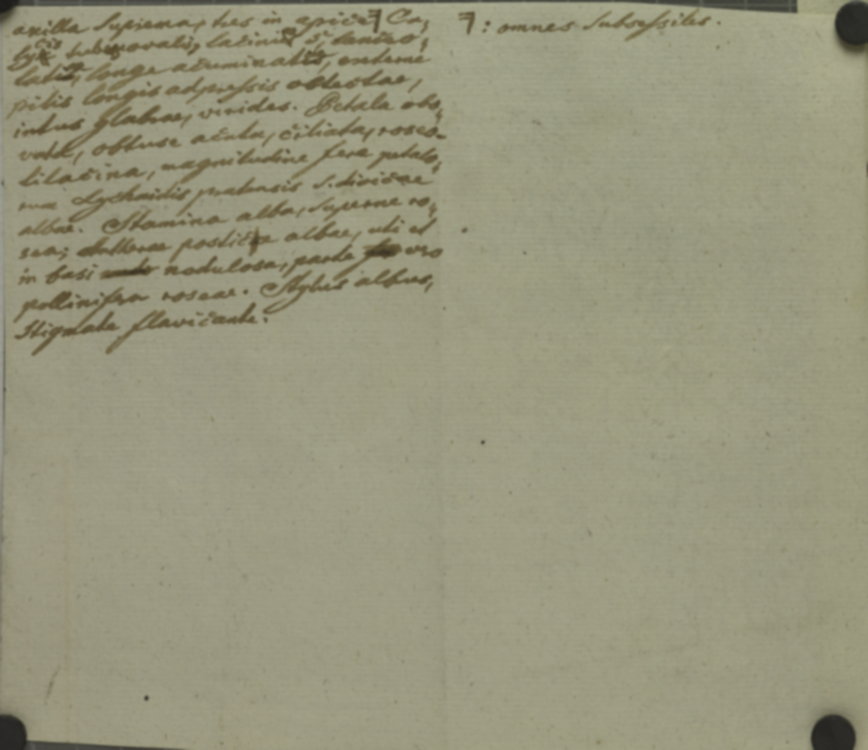 axilla suprema, tres in apice ꟻ Ca,
latis, longe acuminatis, externe
pilis longis adpressis obtectae,
intus glabrae, virides. Petala obo,
vata, obtuse acuta, ciliata, roseo-
lilacina, magnitudine fere petalo,
rum Lychnidis pratensis s. dioicae
albae. Stamina alba, superne ro,
sea; antherae posticae albae, uti et
in basi nodulosa, parte vero
pollinifera roseae. Stylus albus,
Stigmate flavicante.
ꟻ: omnes subsessiles.